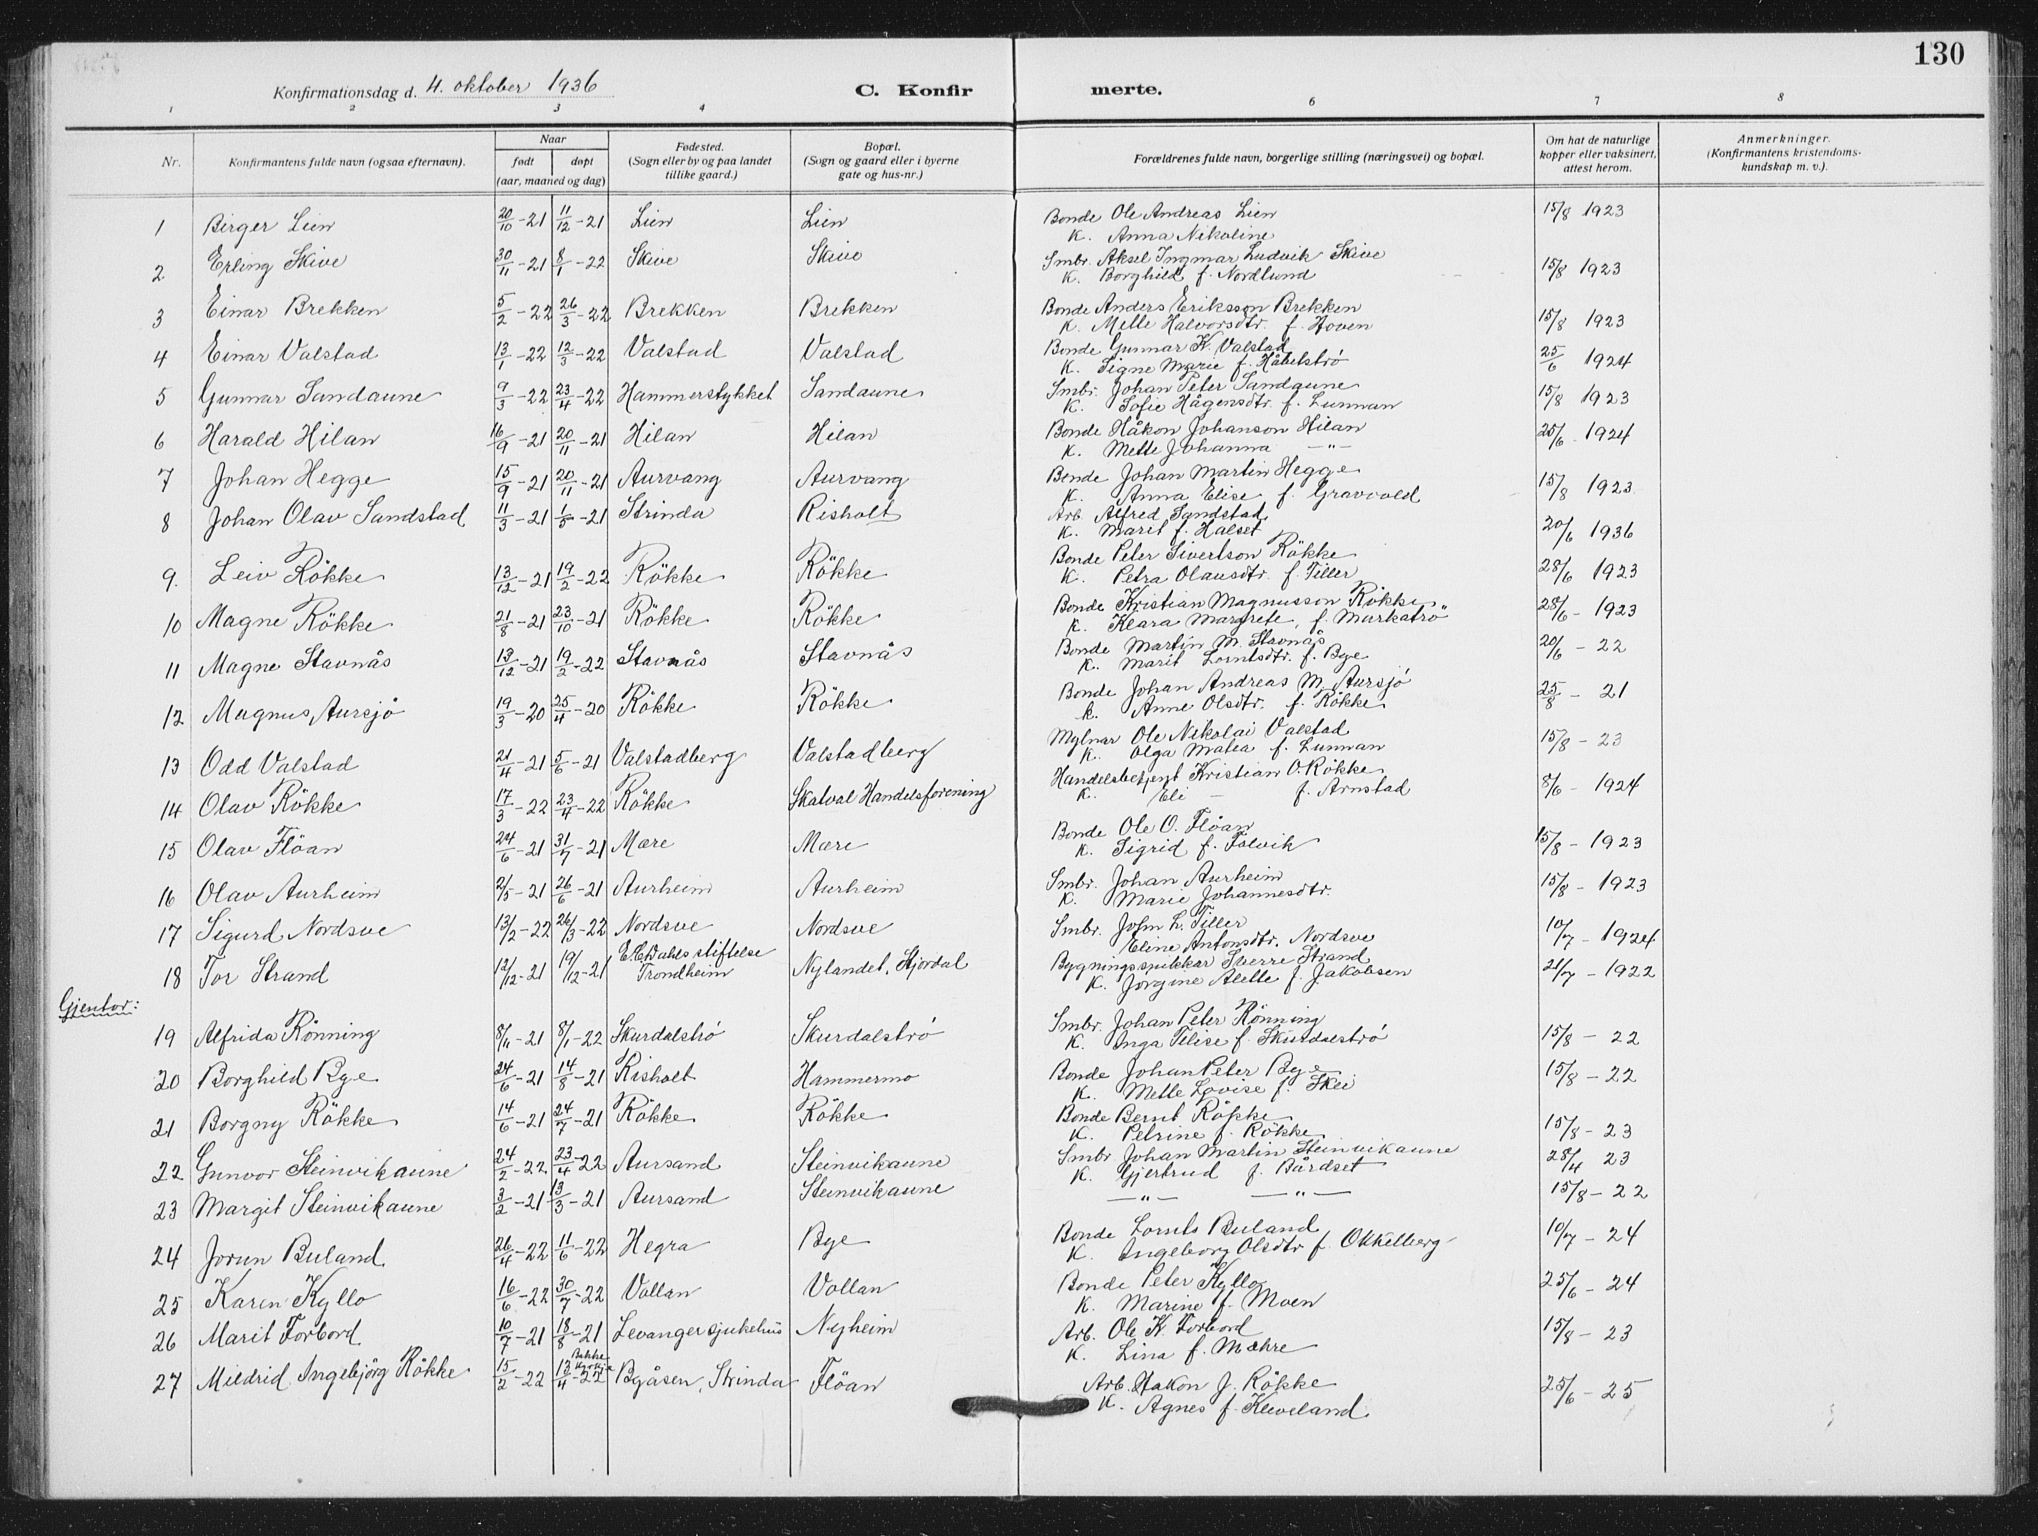 130
Konfirmationsdag d. 4. oktober 1936 C. Konfirmerte.
1 2 3 4 6 7 8
Nr. Konfirmantens fulde navn (ogsaa efternavn). Naar født døpt (aar, maaned og dag) Fødested. (Sogn eller by og paa landet tillike gaard.) Bopæl. (Sogn og gaard eller i byerne gate og hus-nr.) Forældrenes fulde navn, borgerlige stilling (næringsvei) og bopæl. Om hat de naturlige kopper eller vaksinert, attest herom. Anmerkninger. (Konfirmantens kristendomskundskap m. v.).
1 Birger Lien 20/10-21 11/12-21 Lien Lien Bonde Ole Andreas Lien 15/8 1923
K. Anna Nikoline
2 Erling Skive 30/11-21 8/1-22 Skive Skive Smbr. Aksel Ingmar Ludvik Skive 15/8 1923
K. Borghild f. Nordlund
3 Einar Brekken 5/2-22 26/3-22 Brekken Brekken Bonde Anders Eriksson Brekken 15/8 1923
K. Mette Halvorsdtr. f. Hoven
4 Einar Valstad 13/1-22 12/3-22 Valstad Valstad Bonde Gunnar K. Valstad 25/6 1924
K. Signe Marie f. Håbetstrø
5 Gunnar Sandaune 9/3-22 23/4-22 Hammerstykket Sandaune Smbr. Johan Peter Sandaune 15/8 1923
K. Sofie Hågensdtr. f. Lunnan
6 Harald Hilan 16/9-21 20/11-21 Hilan Hilan Bonde Håkon Johanson Hilan 25/6 1924
K. Mette Johanna —"—
7 Johan Hegge 15/9-21 20/11-21 Aurvang Aurvang Bonde Johan Martin Hegge 15/8 1923
K. Anna Elise f. Gravvold
8 Johan Olav Sandstad 11/3-21 1/5-21 Strinda Risholt Arb. Alfred Sandstad 20/6 1936
K. Marit f. Halset
9. Leiv Rökke 13/12-21 19/2-22 Rökke Rökke Bonde Peter Sivertson Rökke 28/6 1923
K. Petra Olausdtr. f. Tiller
10 Magne Rökke 21/8-21 23/10-21 Rökke Rökke Bonde Kristian Magnusson Rökke 28/6-1923
K. Klara Margrete, f. Markatrö
11 Magne Stavnås 13/12-21 19/2-22 Stavnås Stavnås Bonde Martin M. Stavnås 20/6-22
K. Marit Lorntsdtr. f. Bye
12 Magnus Aursjö 19/3-20 25/4-20 Rökke Rökke Bonde Johan Andreas M. Aursjö 25/8-21
k. Anne Olsdtr. f. Rökke
13 Odd Valstad 21/4-21 5/6-21 Valstadberg Valstadberg Mylnar Ole Nikolai Valstad 15/8-23
K. Olga Matea f. Lunnan
14 Olav Rökke 17/3-22 23/4-22 Rökke Skatval Handelsforening Handelsbetjent Kristian O. Rökke 8/6-1924
K. Eli — f. Arnstad
15 Olav Flöan 24/6-21 31/7-21 Mære Mære Bonde Ole O. Flöan 15/8-1923
K. Sigrid f. Folvik
16 Olav Aurheim 2/5-21 26/6-21 Aurheim Aurheim Smbr. Johan Aurheim 15/8-1923
K. Marie Johannesdtr.
17 Sigurd Nordsve 13/2-22 26/3-22 Nordsve Nordsve Smbr. John L. Tiller 10/7-1924
Eline Antonsdtr. Nordsve
18 Tor Strand 12/12-21 19/12-21 E.C. Dahls stiftelse Trondheim Nylandet, Stjordal Bygningssnikkar Sverre Strand 21/7-1922
K. Jørgine Alette f. Jakobsen
Gjentor:
19 Alfrida Rönning 8/11-21 8/1-22 Skurdalströ Skurdalströ Smbr. Johan Peter Rönning 15/8-22
K. Inga Elise f. Skurdalströ
20 Borghild Bye 24/6-21 14/8-21 Risholt Hammermo Bonde Johan Peter Bye 15/8-22
K. Mette Lovise f. Skei
21 Borgny Rökke 14/6-21 24/7-21 Rökke Rökke Bonde Bernt Rökke 15/8-23
K. Petrine f. Rökke
22 Gunvor Steinvikaune 24/2-22 23/4-22 Aursand Steinvikaune Smbr Johan Martin Steinvikaune 28/4 23
K. Gjertrud f. Bårdset
23 Margit Steinvikaune 3/2-21 13/3-21 Aursand Steinvikaune —"— —"— 15/8-22
24 Jorun Buland 26/4-22 11/6-22 Hegra Bye Bonde Lornts Buland 10/7-24
K. Ingeborg Olsdtr f. Okkelberg
25 Karen Kyllo 16/6-22 30/7-22 Vollan Vollan Bonde Peter Kyllo 25/6-24
K. Marine f. Moen
26 Marit Forbord 10/7-21 18/8-21 Levanger sjukehus Nyheim Arb. Ole K. Forbord 15/8-23
K. Lina f. Mæhre
27 Mildrid Ingebjörg Rökke 15/2-22 Bakke Kyrkje 13/4-22 Bgåsen, Strinda Flöan Arb. Hakon J. Rökke 25/6-25
K. Agnes f. Kleveland